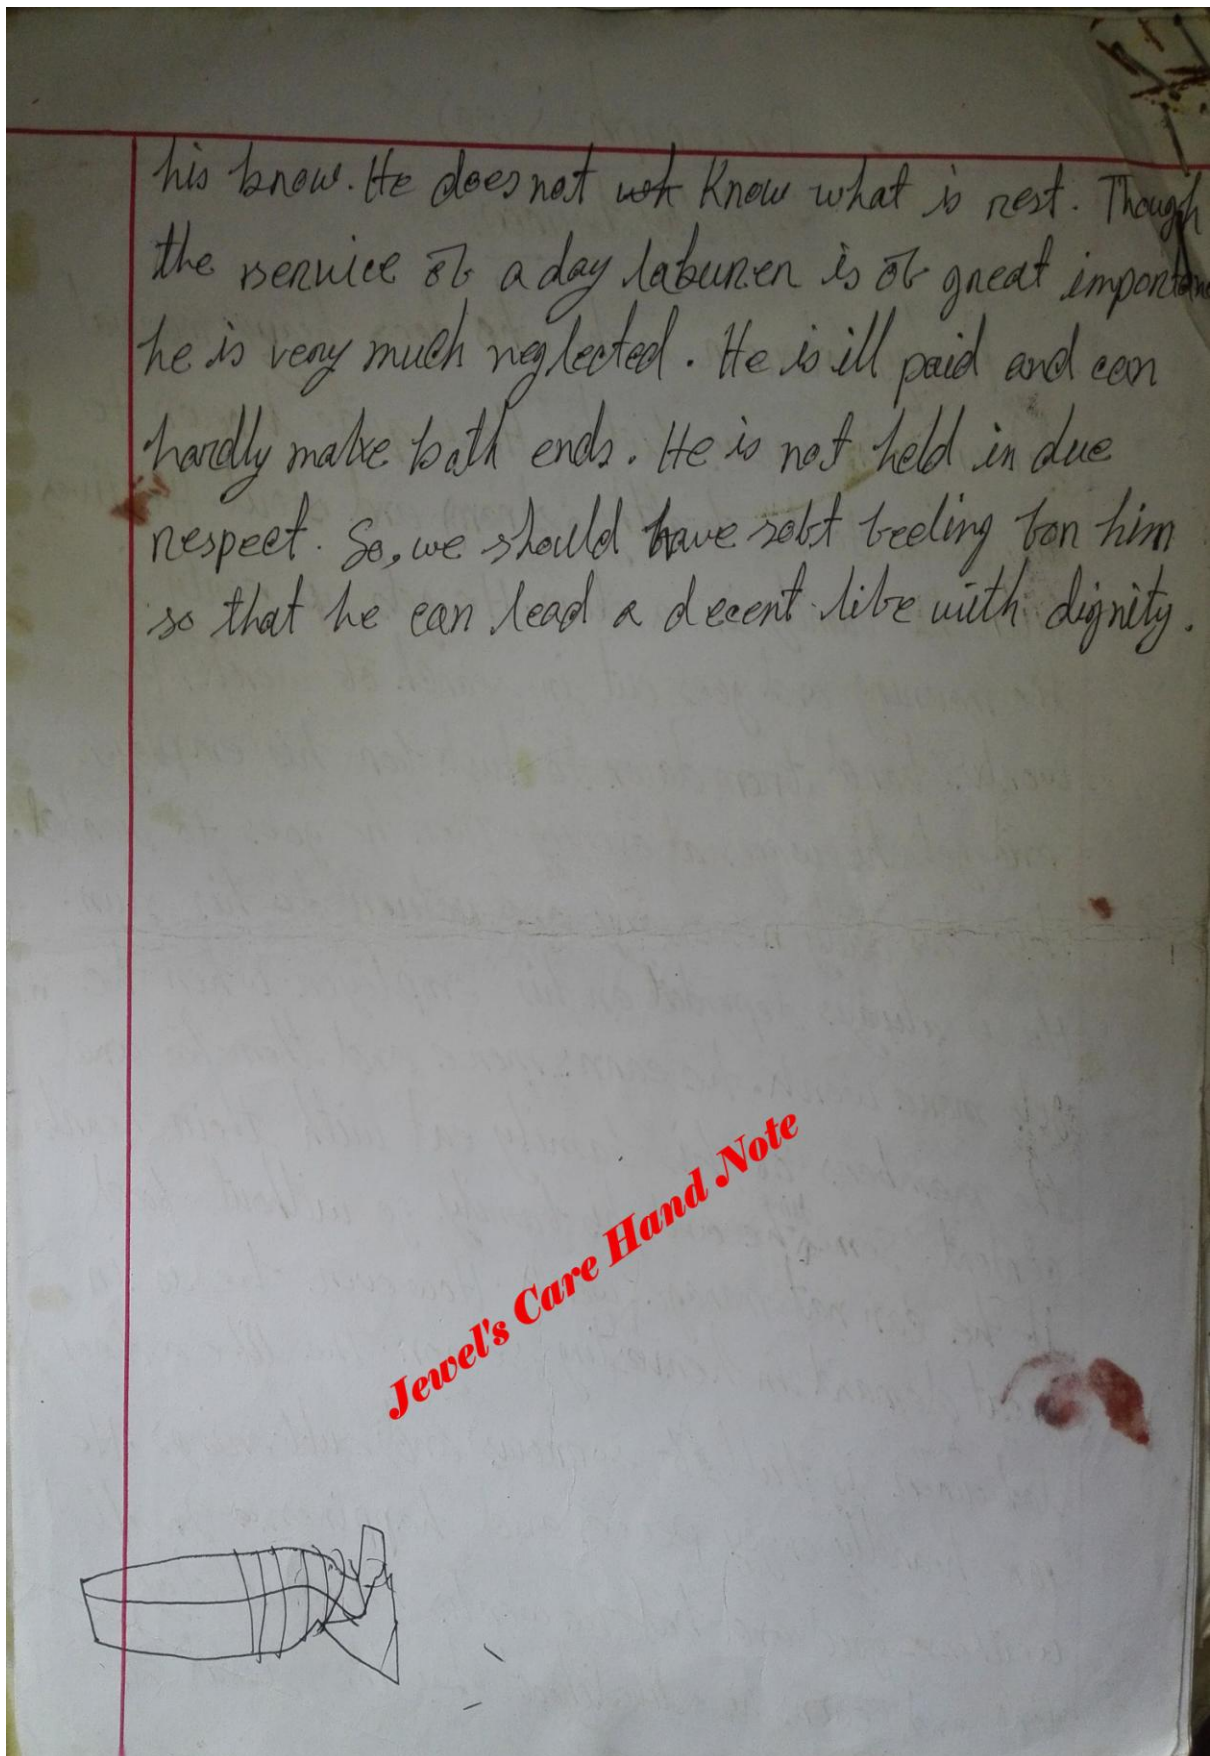 his brow. He does not woh know what is rest. Though
the service of a day laburer is of great importanc
he is very much neglected. He is ill paid and can
hardly make both ends. He is not held in due
respect. So, we should have soft feeling for him
so that he can lead a decent life with dignity.
Jewel's Care Hand Note